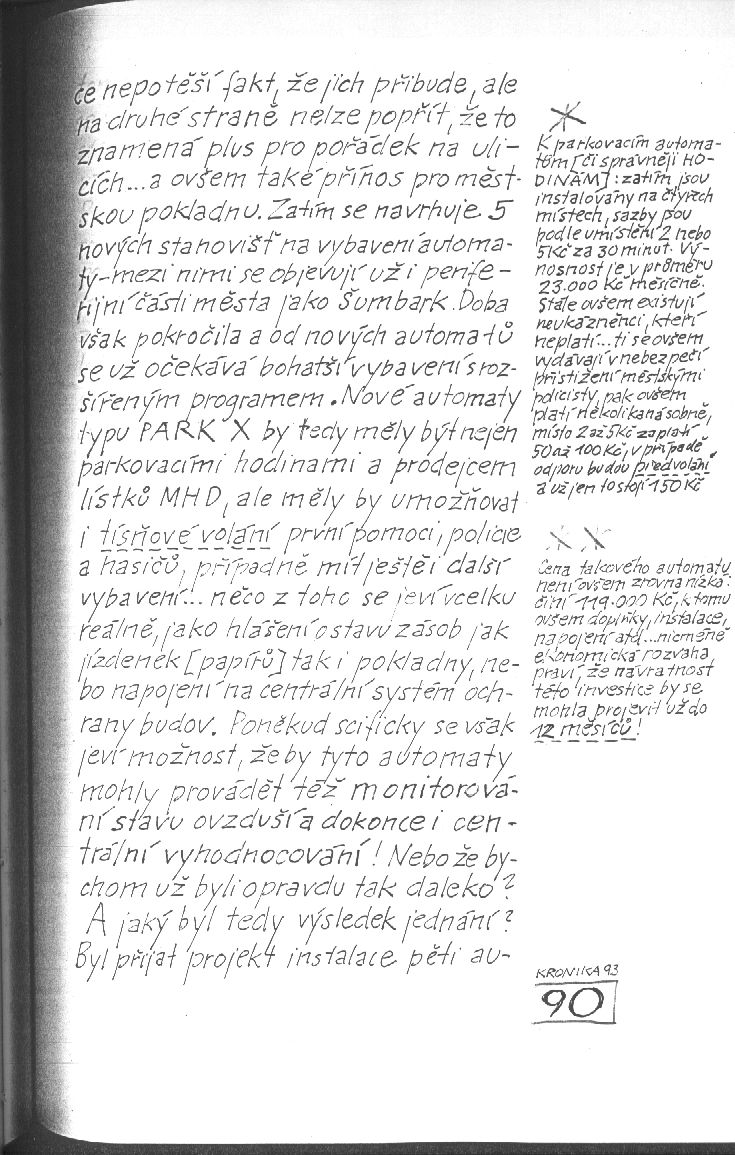 če nepotěší fakt, že jich přibude, ale
na druhé straně nelze popřít, že to
znamená plus pro pořádek na uli-
cích... a ovšem také přínos pro měst-
skou pokladnu. Zatím se navrhuje 5
nových stanovišť na vybavení automa-
ty - mezi nimi se objevují už i perife-
rijní části města jako Šumbark. Doba
však pokročila a od nových automatů
se už očekává bohatší vybavení s roz-
šířeným programem. Nové automaty
typu PARK X by tedy měly být nejen
parkovacími hodinami a prodejcem
lístků MHD, ale měly by umožňovat
i tísňové volání první pomoci, policie
a hasičů, případně mít ještě i další
vybavení... něco z toho se jeví vcelku
reálně, jako hlášení o stavu zásob jak
jízdenek [papírů] tak i pokladny, ne-
bo napojení na centrální systém och-
rany budov. Poněkud scificky se však
jeví možnost, že by tyto automaty
mohly provádět též monitorová-
ní stavu ovzduší a dokonce i cen-
trální vyhodnocování! Nebo že by-
chom už byli opravdu tak daleko?
A jaký byl tedy výsledek jednání?
Byl přijat projekt instalace pěti au-
K parkovacím automa-
tům [či správněji HO-
DINÁM]: zatím jsou
instalovány na čtyřech
místech, sazby jsou
podle umístění 2 nebo
5Kč za 30 minut. Vý-
nosnost je v průměru
23.000 Kč měsíčně.
Stále ovšem existují
neukáznění, kteří
neplatí... ti se ovšem
vydávají v nebezpečí
přistižení městskými
policisty, pak ovšem
platí několikanásobně,
místo 2 až 5Kč zaplatí
50 až 100 Kč, v případě
odporu budou předvolání
a už jen to stojí 150 Kč
Cena takového automatu
není ovšem zrovna nízká:
činí 119.000 Kč, k tomu
ovšem doplňky, instalace,
napojení atd... nicméně
ekonomická rozvaha
praví, že návratnost
této investice by se
mohla projevit už do
12 měsíců!
KRONIKA 93
90